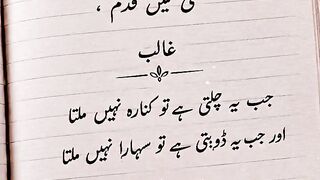 میں قدم ،
غالب
جب یہ چلتی ہے تو کنارہ نہیں ملتا
اور جب یہ ڈوبتی ہے تو سہارا نہیں ملتا